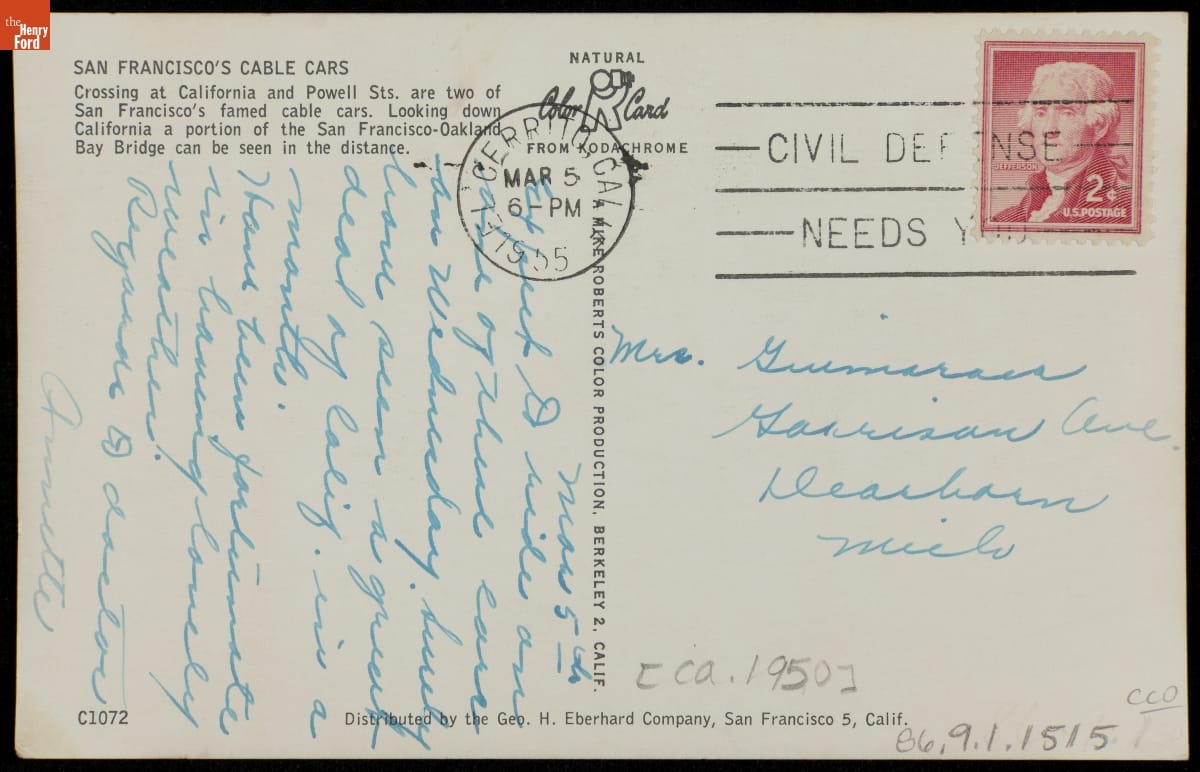 the Henry Ford
SAN FRANCISCO'S CABLE CARS
Crossing at California and Powell Sts. are two of
San Francisco's famed cable cars. Looking down
California a portion of the San Francisco-Oakland
Bay Bridge can be seen in the distance.
NATURAL
Color Card
FROM KODACHROME
EL CERRITO, CAL.
MAR 5
6-PM
1955
CIVIL DEFENSE
NEEDS YOU
JEFFERSON
2¢
U.S. POSTAGE
A MIKE ROBERTS COLOR PRODUCTION, BERKELEY 2, CALIF.
Mar 5th
I ride on
one of these cars
on Wednesday. Surely
have seen a great
deal of Calif. in a
month.
Have been fortunate
in having lovely
weather.
Regards to doctor
Annette
Mrs. Guimaraes
Garrison Ave.
Dearborn
Mich
[ca. 1950]
CCO
86.9.1.1515
C1072
Distributed by the Geo. H. Eberhard Company, San Francisco 5, Calif.